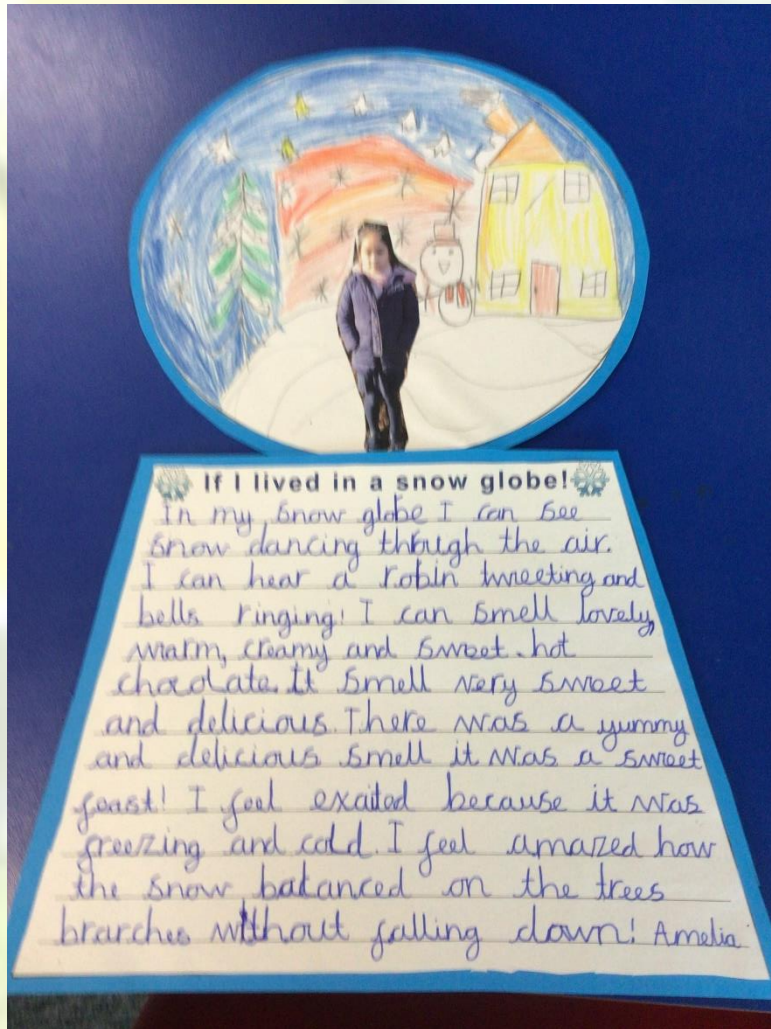 If I lived in a snow globe!
In my snow globe I can see
snow dancing through the air.
I can hear a robin tweeting and
bells ringing! I can smell lovely,
warm, creamy and sweet hot
chocolate. It smell very sweet
and delicious. There was a yummy
and delicious smell it was a sweet
feast! I feel exaited because it was
freezing and cold. I feel amazed how
the snow balanced on the trees
brarches without falling down! Amelia